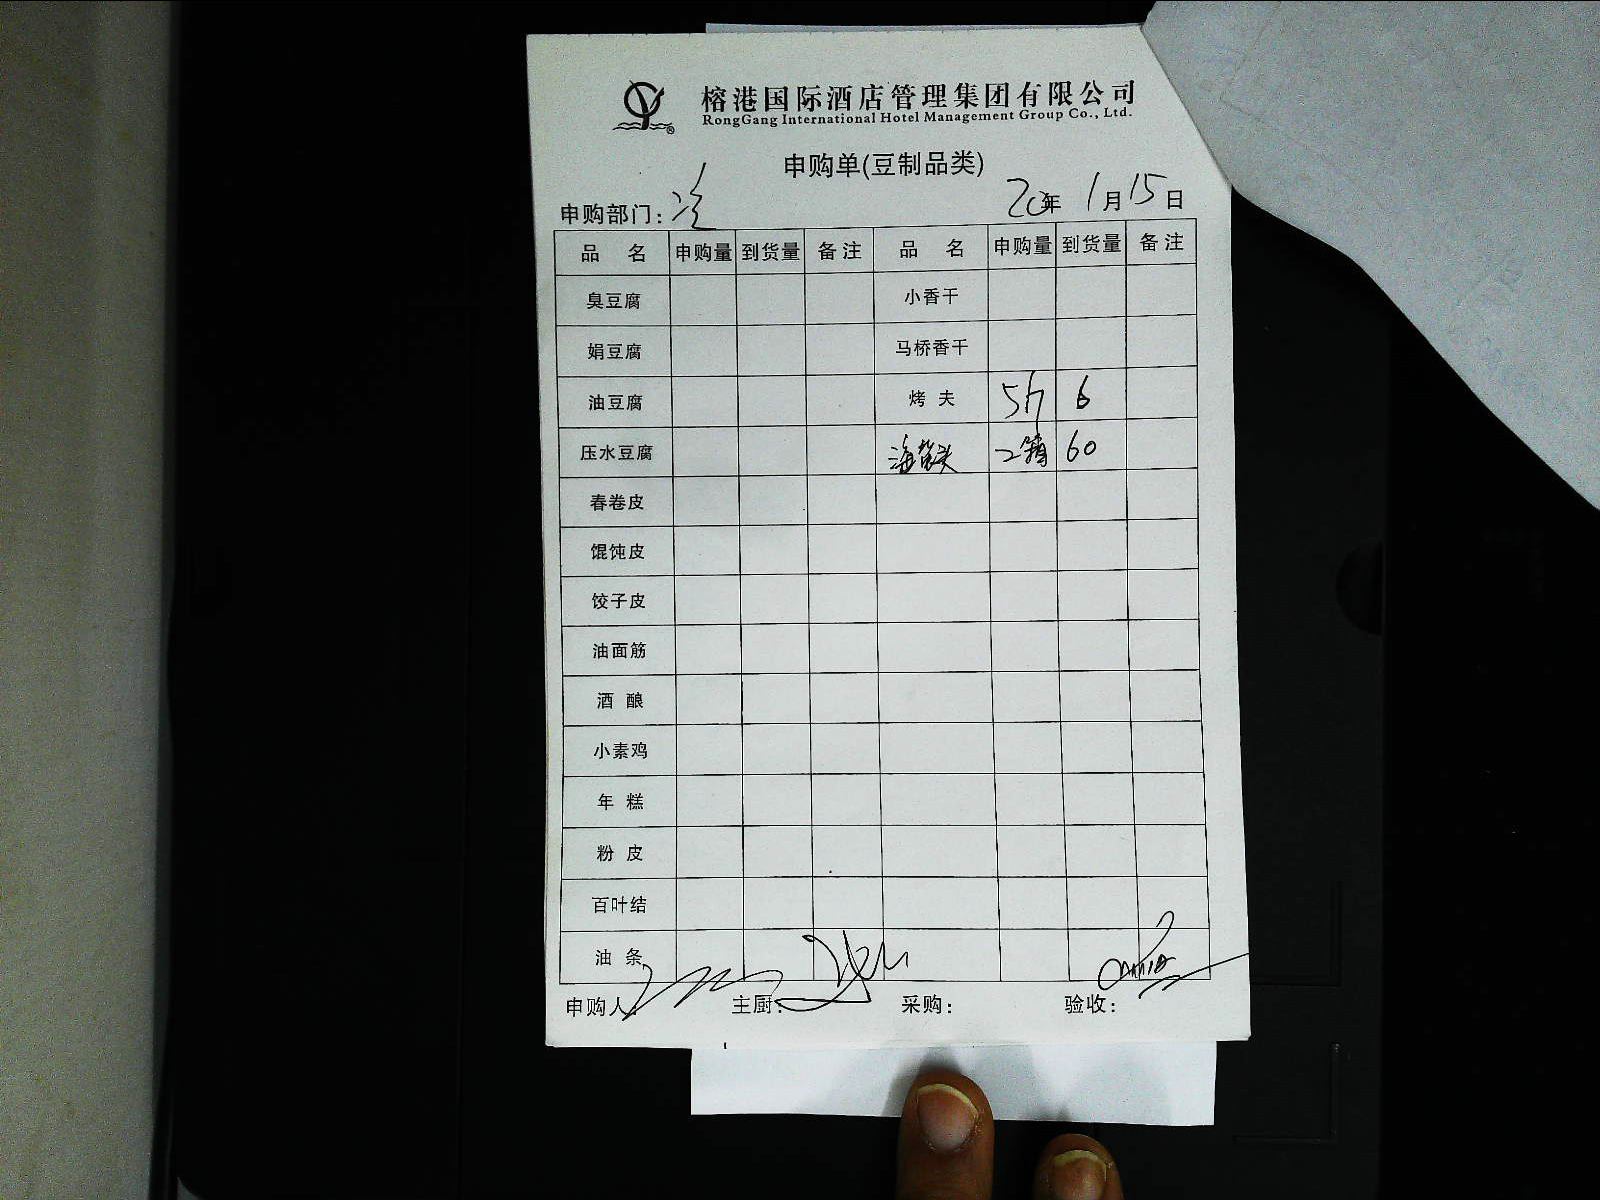 榕港国际酒店管理集团有限公司
RongGang International Hotel Management Group Co., Ltd.
申购单(豆制品类)
申购部门: 冷 20年 1月15日
品 名 申购量 到货量 备注 品 名 申购量 到货量 备注
臭豆腐 小香干
娟豆腐 马桥香干
油豆腐 烤 夫 5斤 6
压水豆腐 海带头 2箱 60
春卷皮
馄饨皮
饺子皮
油面筋
酒 酿
小素鸡
年 糕
粉 皮
百叶结
油 条
申购人: 主厨: 采购: 验收: